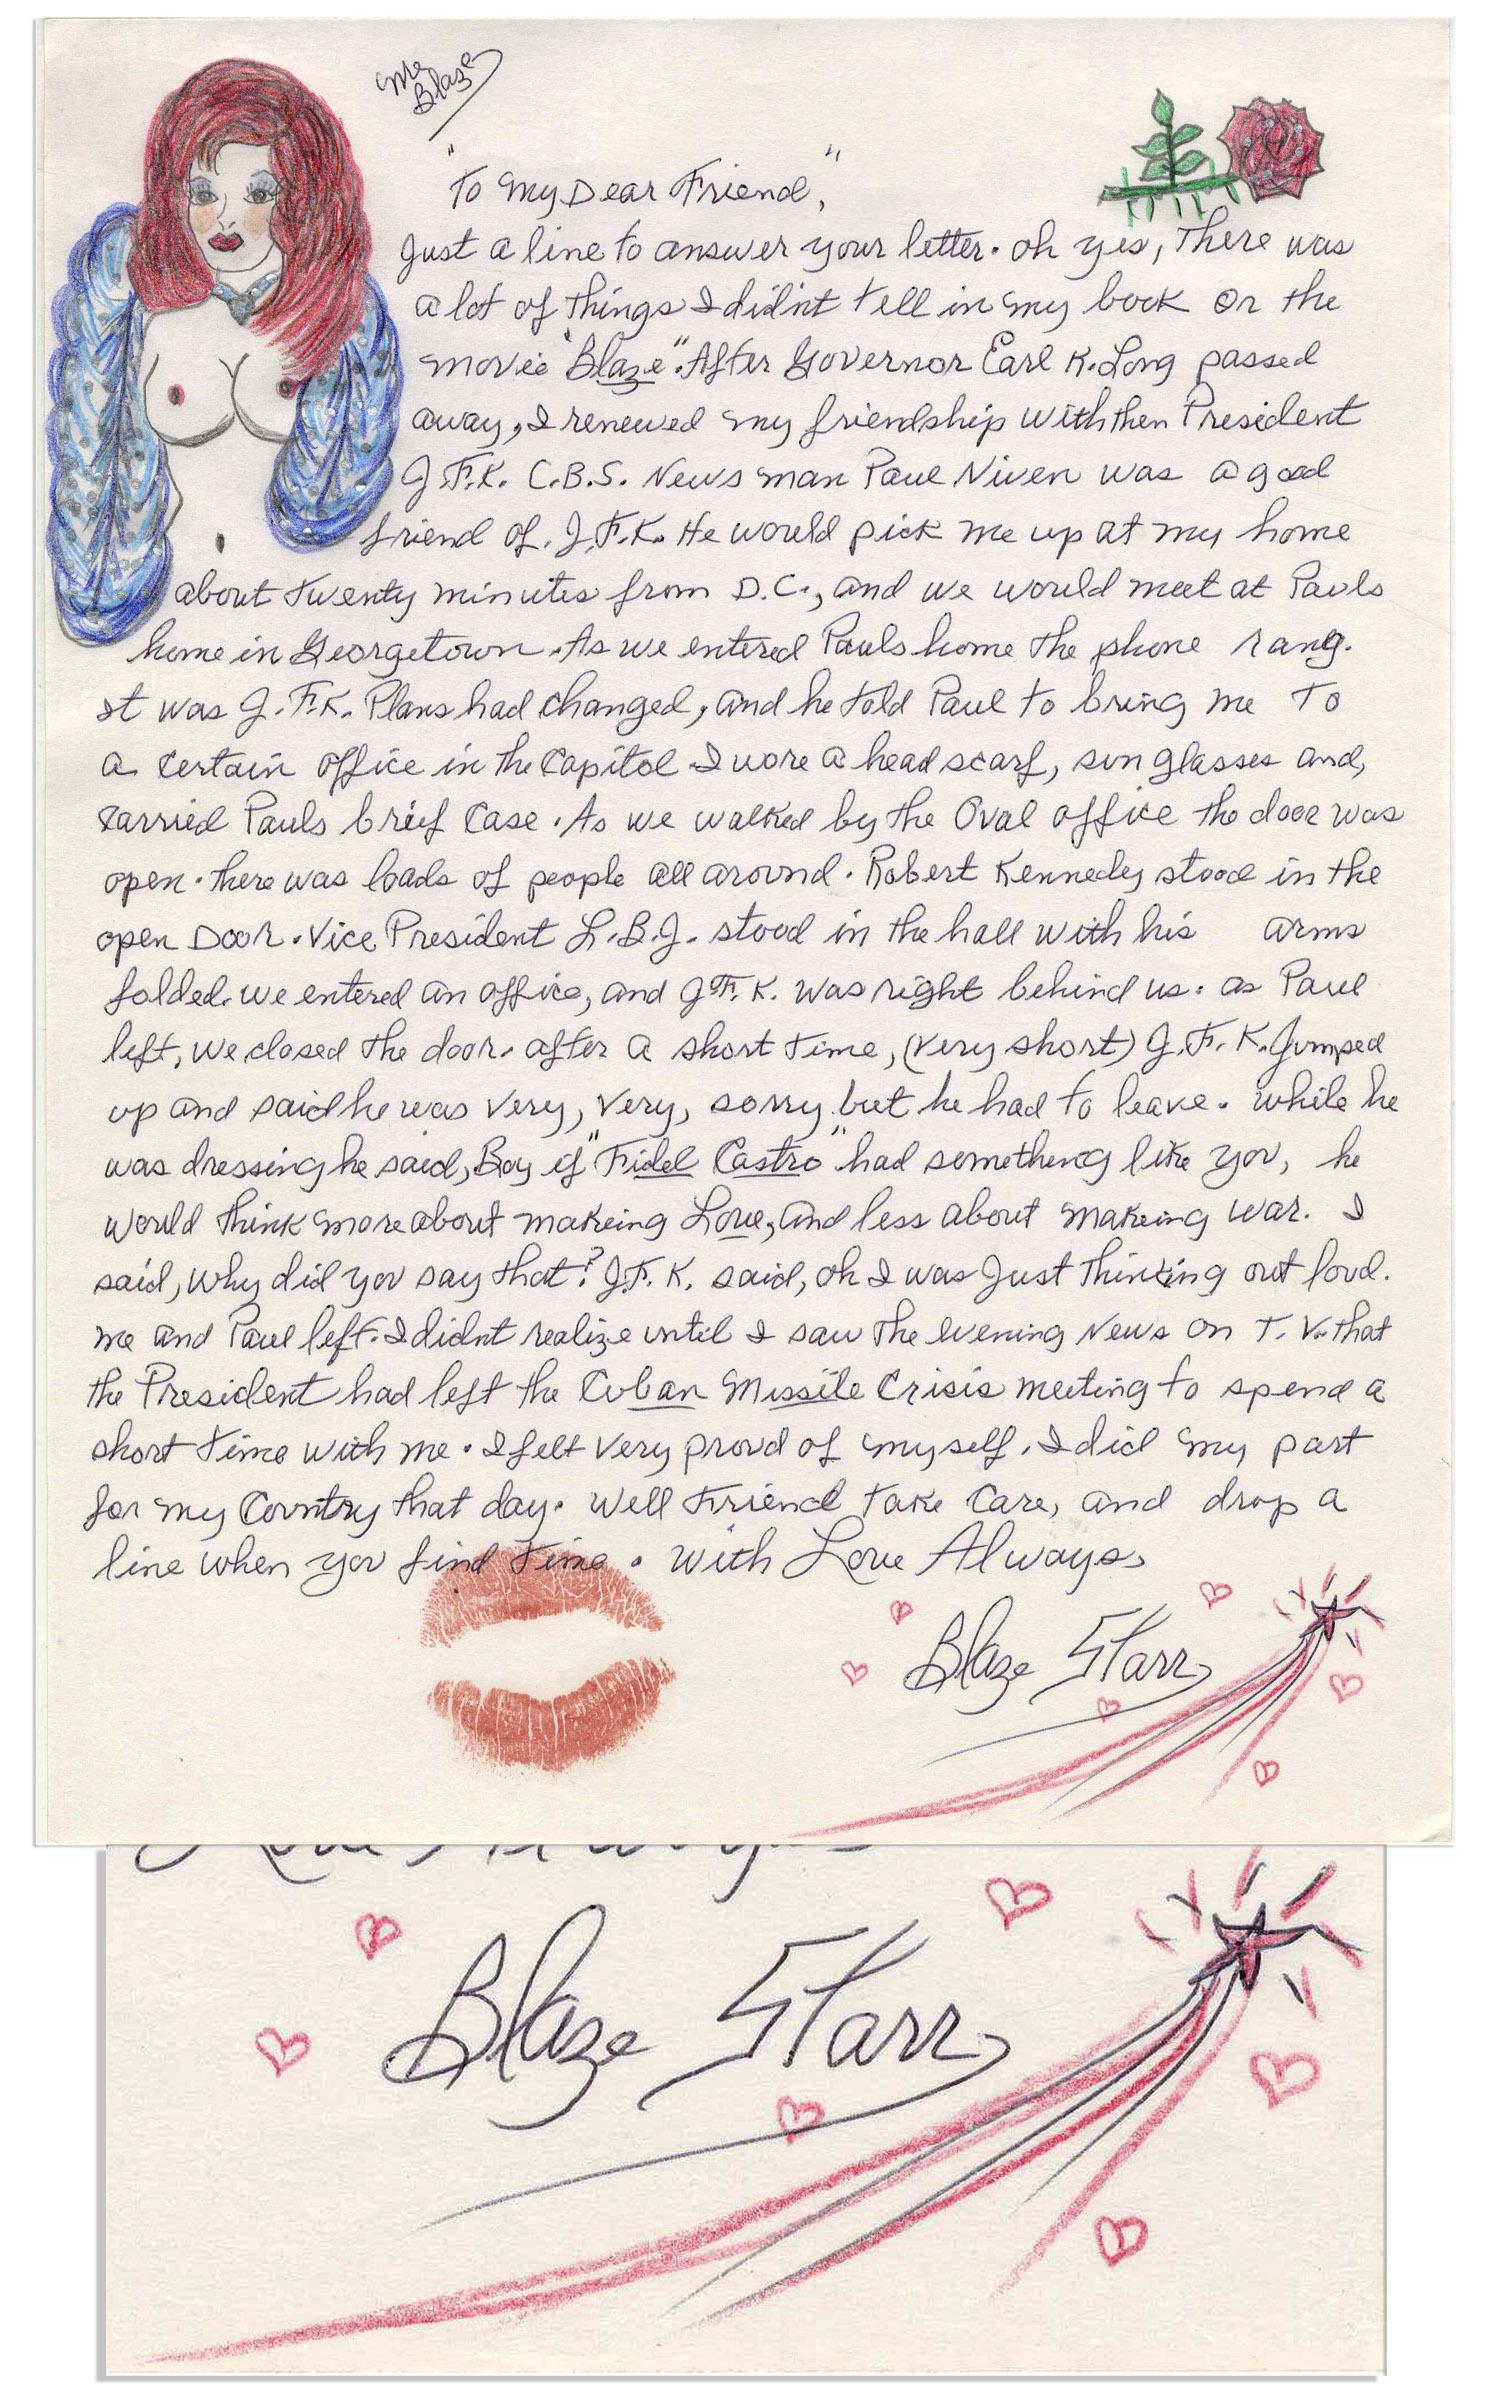 Me
Blaze
"To My Dear Friend,"
Just a line to answer your letter. Oh yes, There was
a lot of things I didn't tell in my book or the
movie "Blaze". After Governor Earl K. Long passed
away, I renewed my friendship with then President
J.F.K. C.B.S. News man Paul Niven was a good
friend of J.F.K. He would pick me up at my home
about twenty minutes from D.C., and we would meet at Pauls
home in Georgetown. As we entered Pauls home the phone rang.
It was J.F.K. Plans had changed, and he told Paul to bring me To
a certain office in the Capitol I wore a head scarf, sun glasses and,
carried Pauls brief case. As we walked by the Oval office the door was
open. there was loads of people all around. Robert Kennedy stood in the
open Door. Vice President L.B.J. stood in the hall with his arms
folded. we entered an office, and J.F.K. was right behind us. as Paul
left, we closed the door. after a short time, (very short) J.F.K. Jumped
up and said he was very, very, sorry but he had to leave. While he
was dressing he said, Boy if "Fidel Castro" had something like you, he
would think more about makeing Love, and less about makeing war. I
said, why did you say that? J.F.K. said, oh I was Just Thinking out loud.
me and Paul left. I didnt realize until I saw the evening News on T.V. that
the President had left the Cuban Missile Crisis meeting to spend a
short time with me. I felt very proud of myself. I did my part
for my Country that day. Well Friend take Care, and drop a
line when you find time. With Love Always,
Blaze Starr
Love Always
Blaze Starr